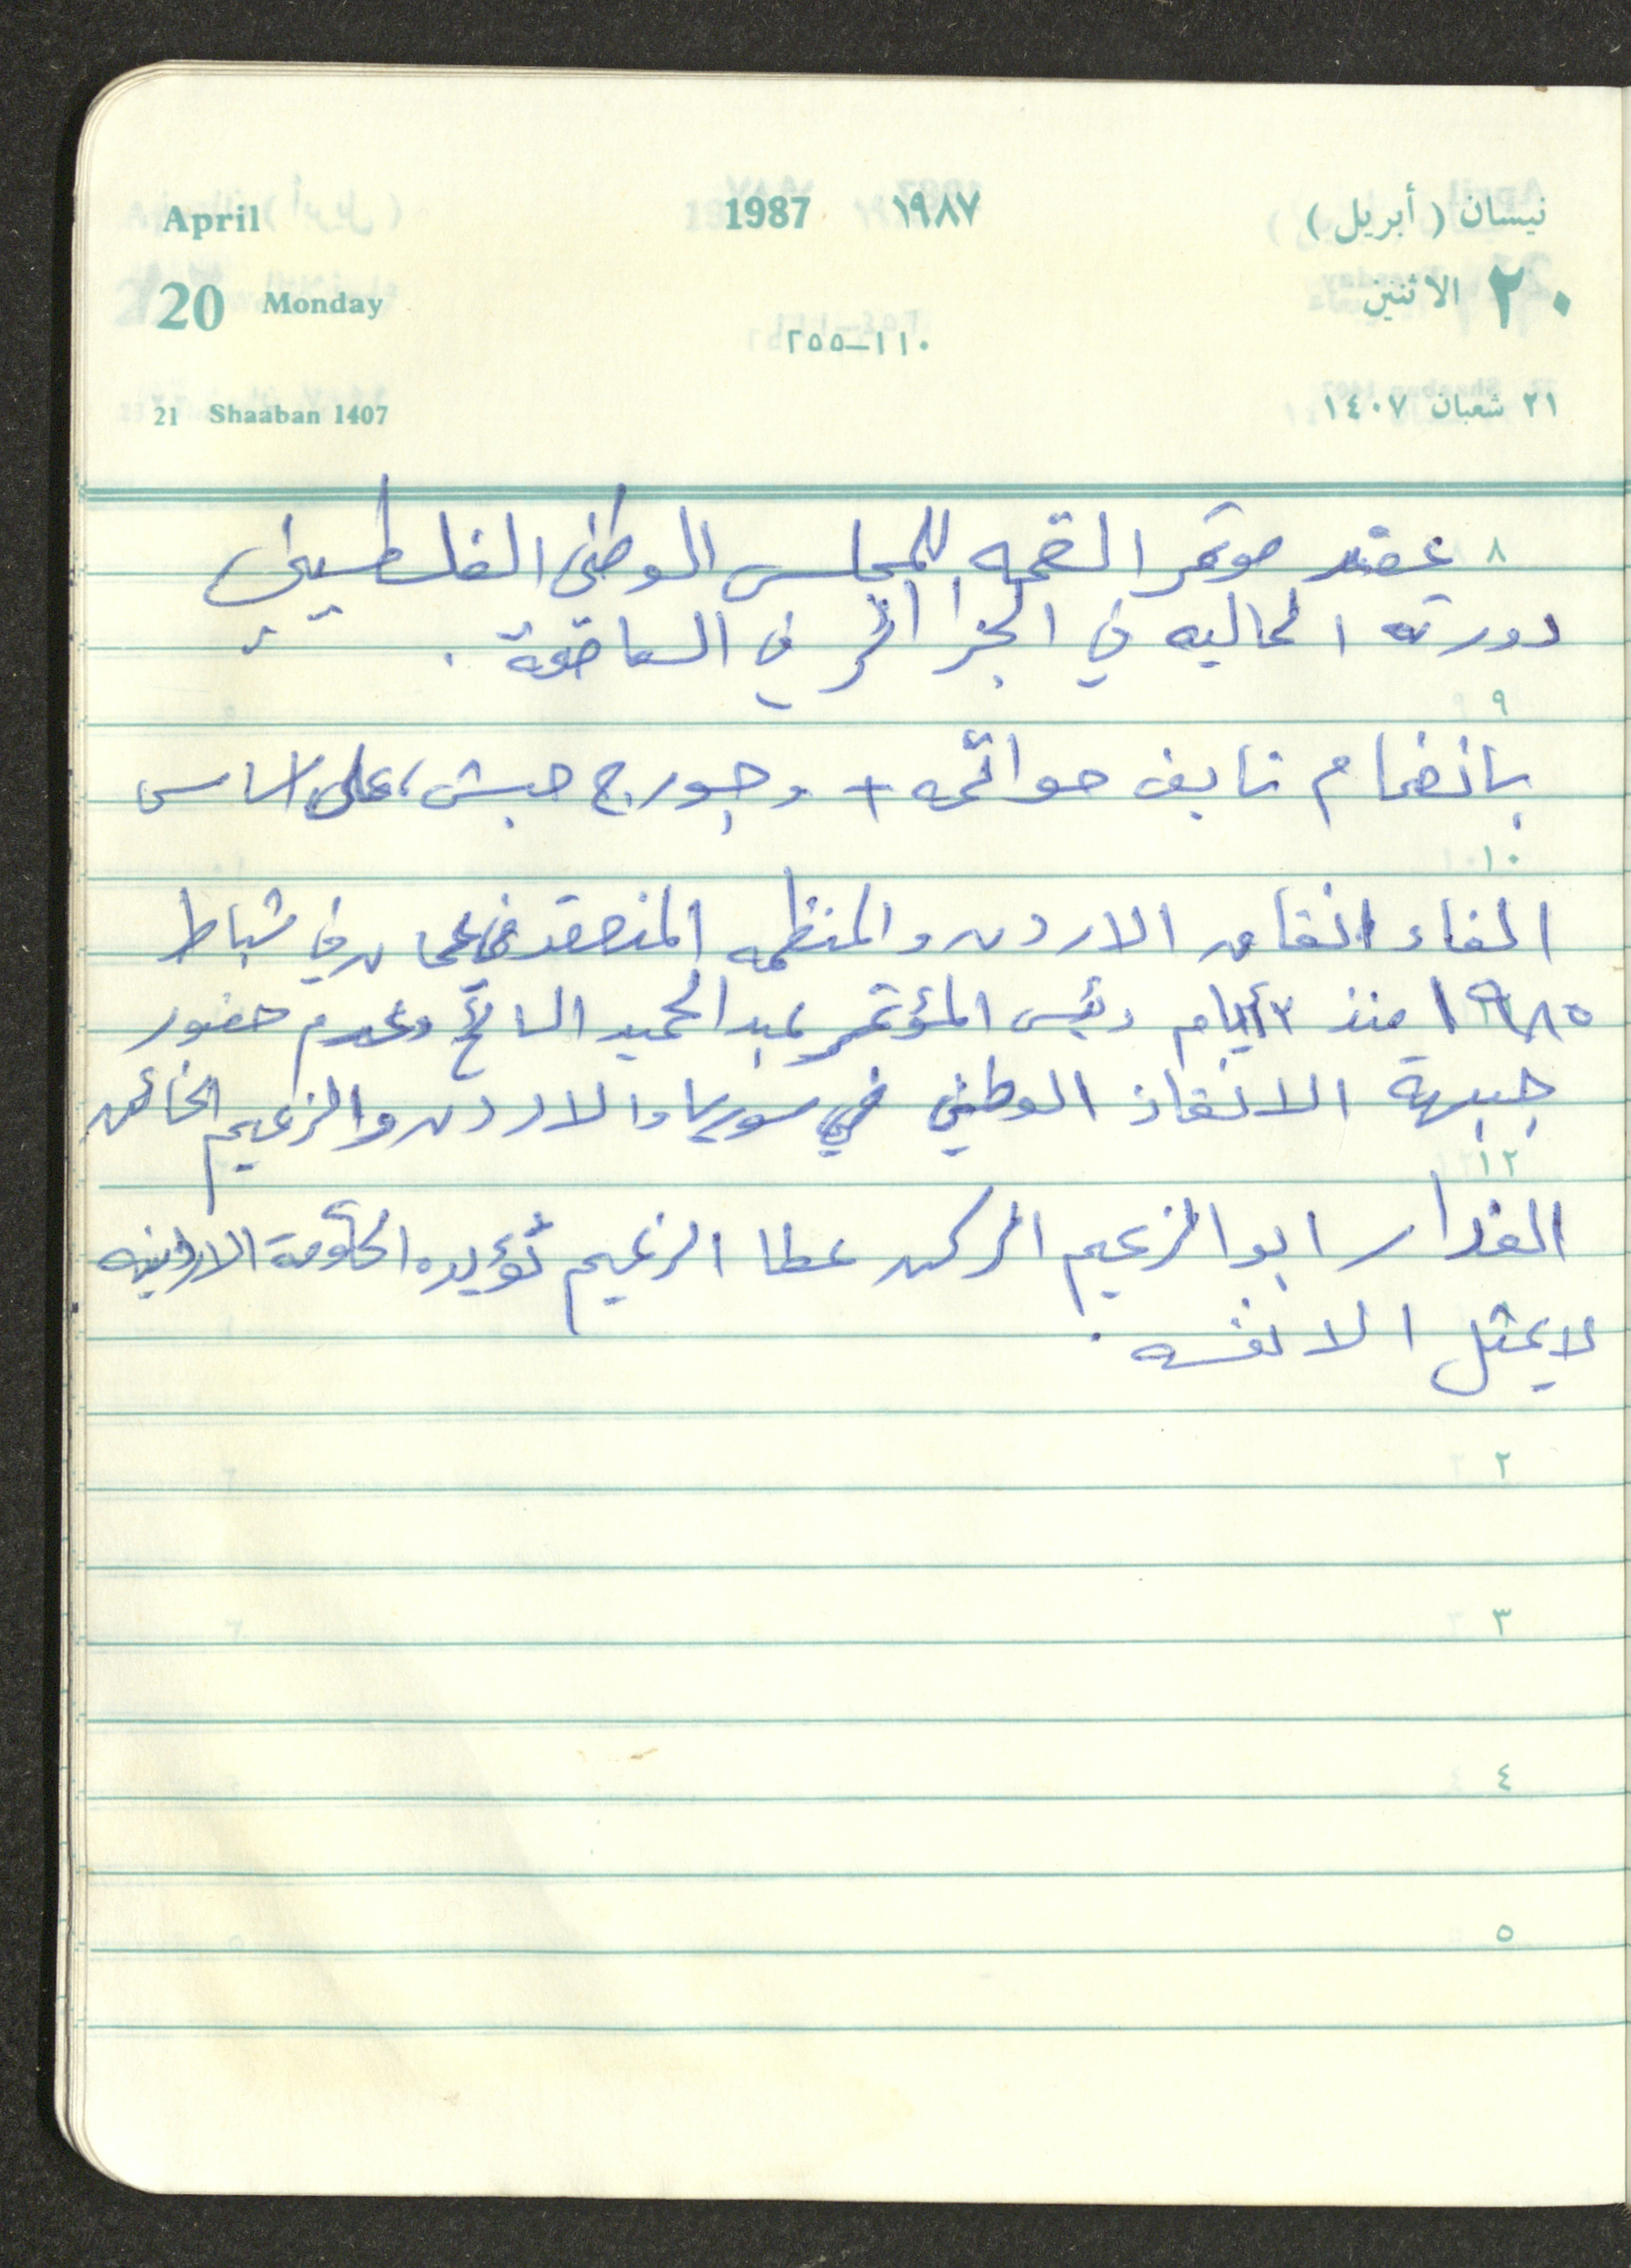 April 1987 ١٩٨٧ نيسان (أبريل)
20 Monday ٢٠ الاثنين
١١٠-٢٥٥
21 Shaaban 1407 ٢١ شعبان ١٤٠٧
٨ عقد موتمر القمه للمجلس الوطني الفلسطيني
دورته الحاليه في الجزائر في العاصمة.
٩
بانضمام نايف حواتمه + وجورج حبش، على اساس
١٠
الغاء اتفاق الاردن والمنظمه المنعقد في عمان في شباط
١٩٨٥ منذ ٣ ايام رئيس المؤتمر عبد الحميد السائح وعدم حضور
جبهة الانقاذ الوطني في سوريا والاردن والزعيم الخائن
١٢
الغدار ابو الزعيم الركن عطا الزعيم تؤيده الحكومة الاردنيه
لا يمثل الا نفسه.
٢
٣
٤
٥